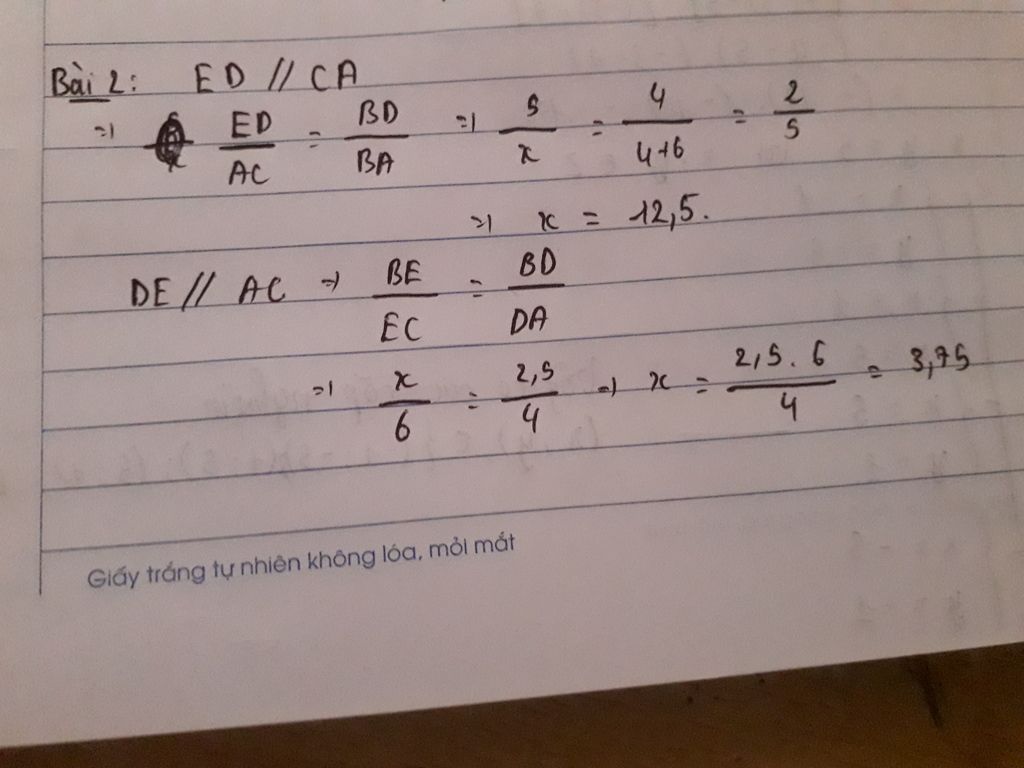 Bài 2: ED // CA
=> ED/AC = BD/BA => 5/x = 4/4+6 = 2/5
=> x = 12,5.
DE // AC => BE/EC = BD/DA
=> x/6 = 2,5/4 => x = 2,5 . 6/4 = 3,75
Giấy trắng tự nhiên không lóa, mỏi mắt